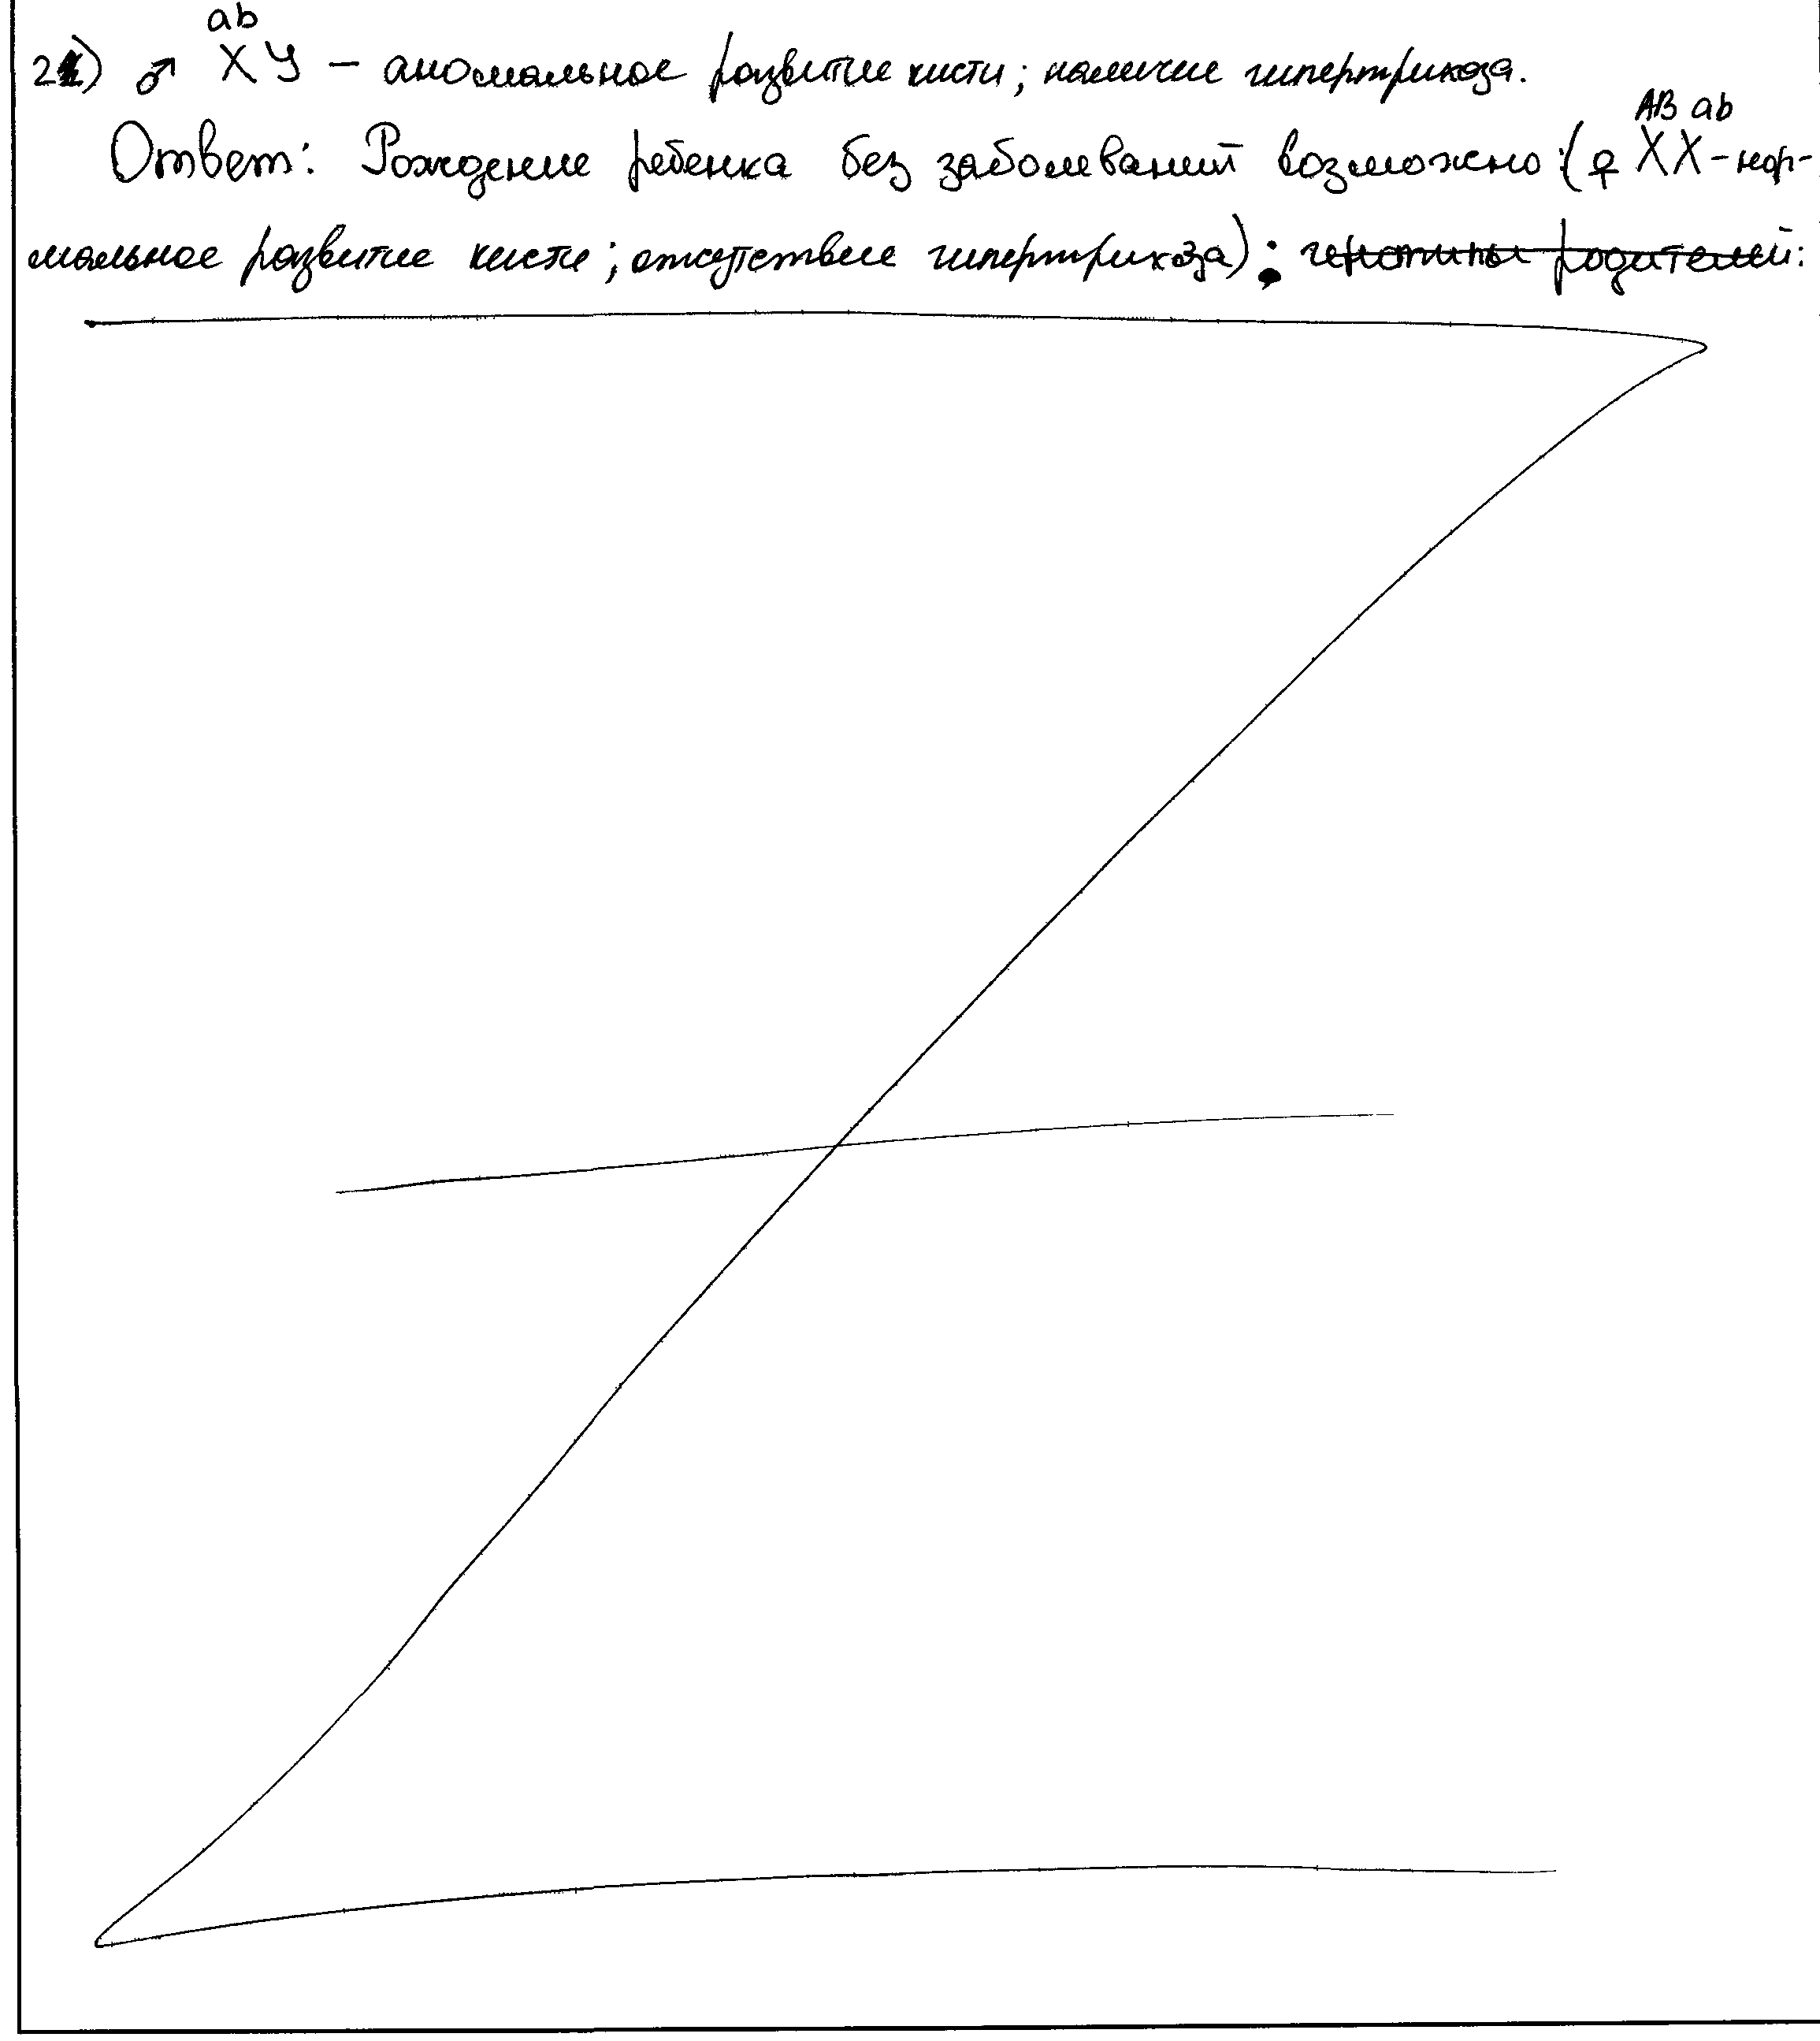 ab
2) ♂ X У – аномальное развитие кисти; наличие гипертрихоза.
AB ab
Ответ: Рождение ребенка без заболеваний возможно: (♀ XX - нор-
мальное развитие кисти; отсутствие гипертрихоза). генотипы родителей: